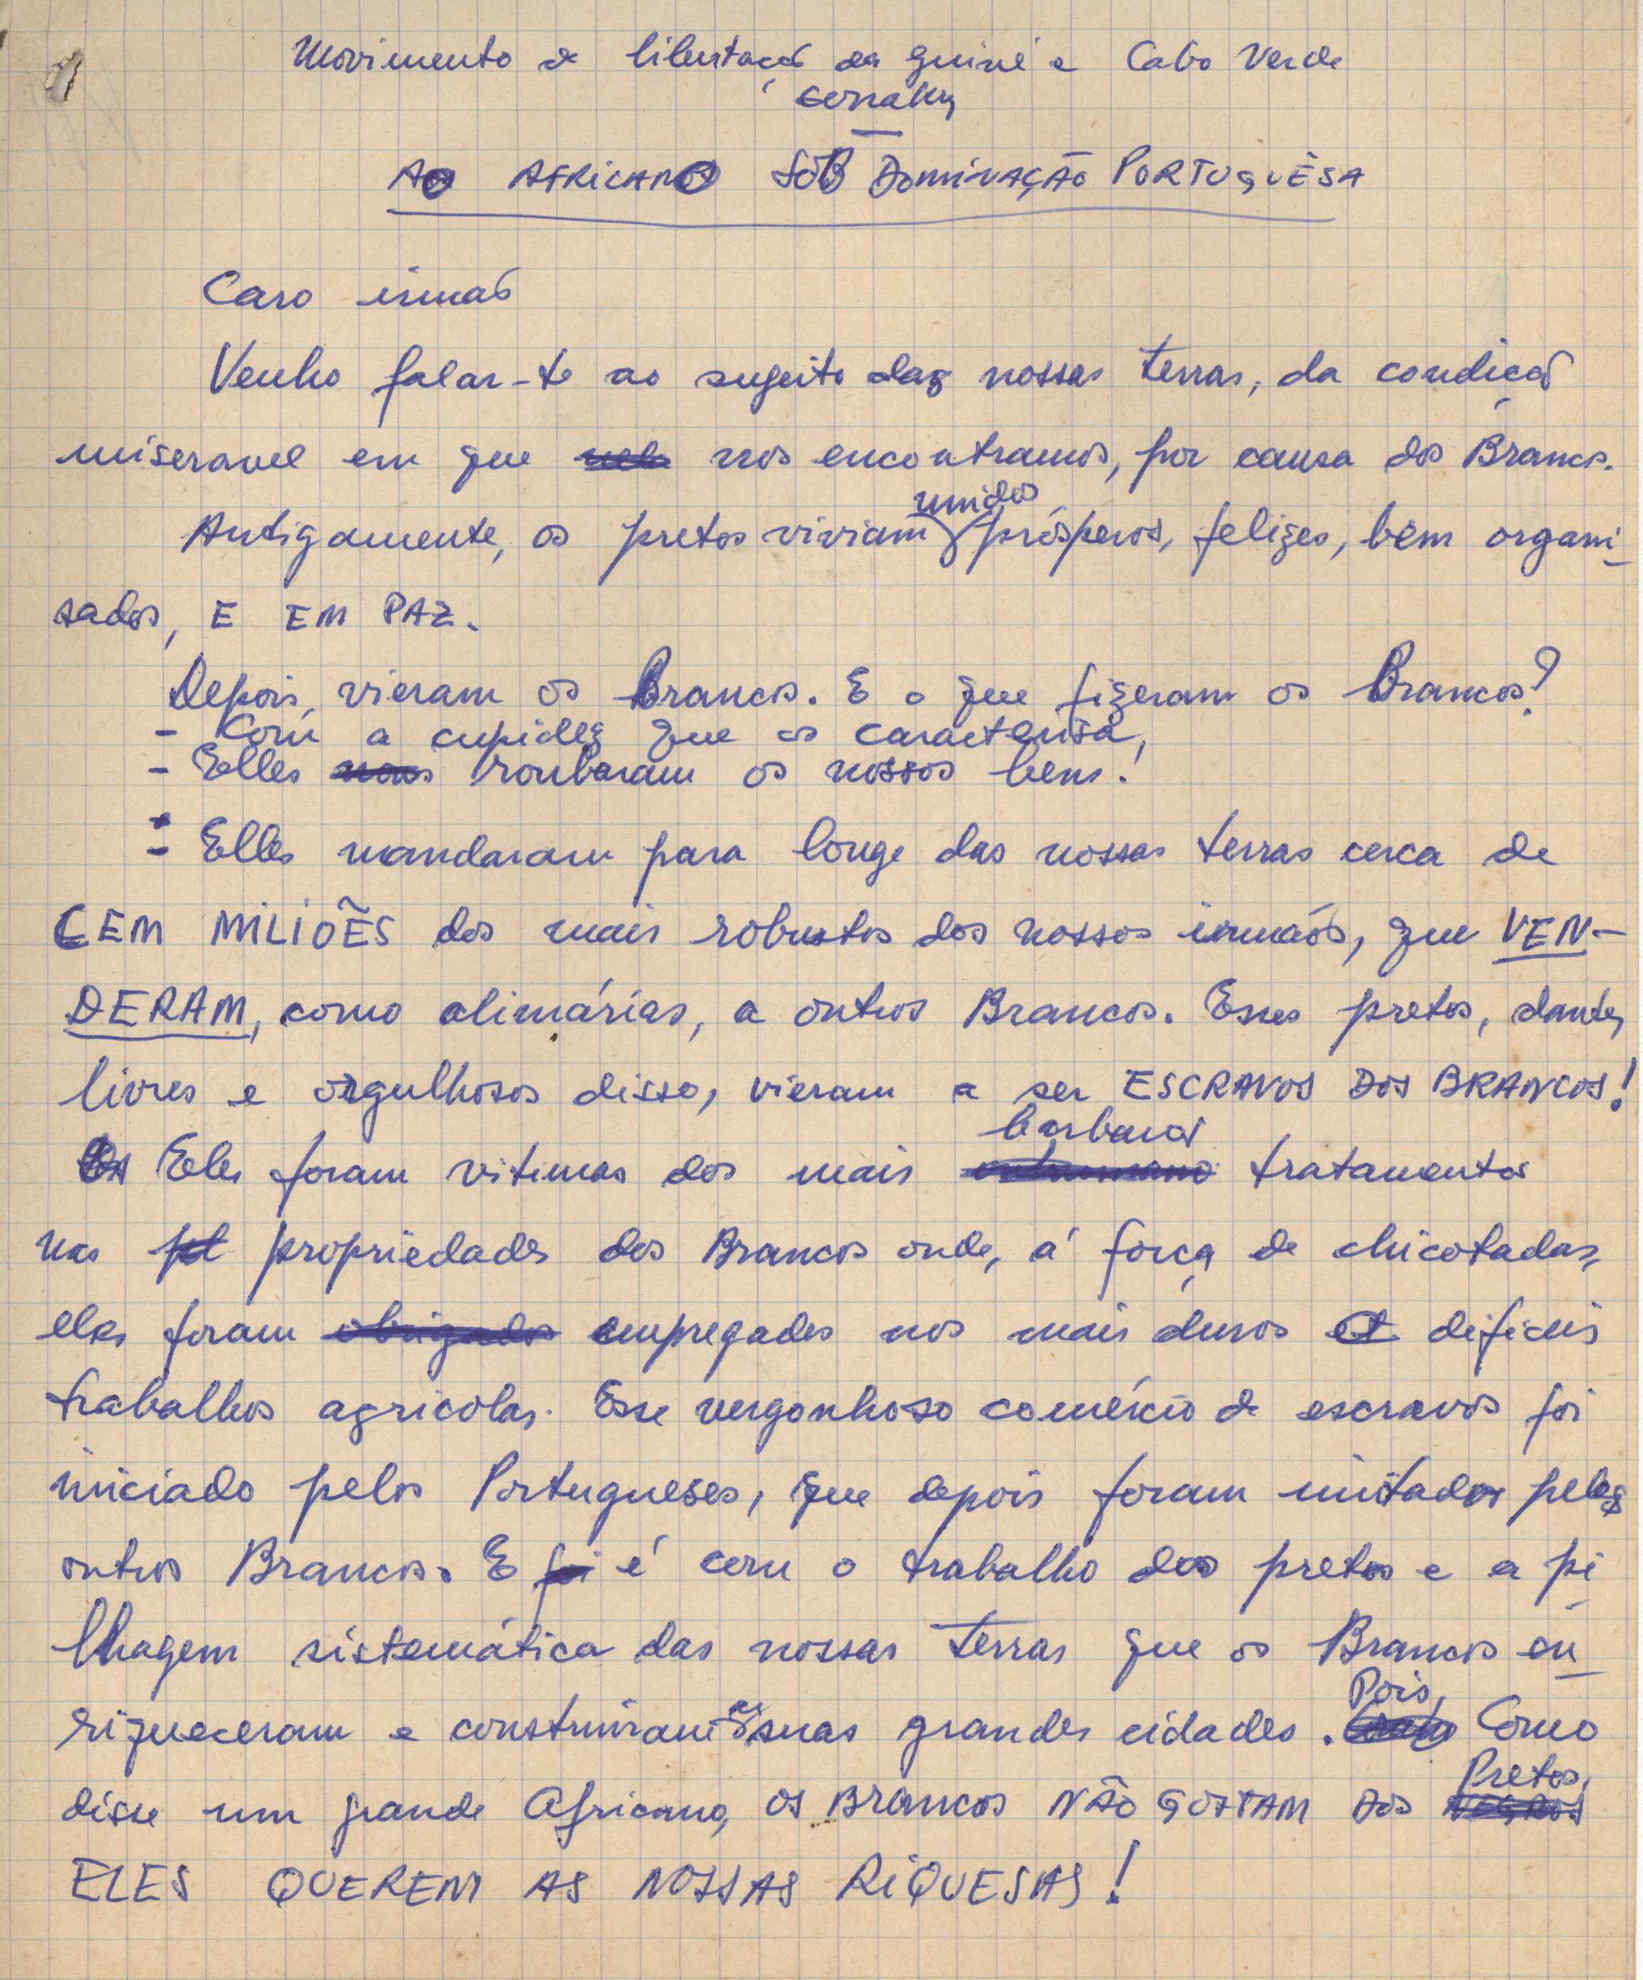 Movimento de libertação da Guiné e Cabo Verde
Conakry
AO AFRICANO SOB DOMINAÇÃO PORTUGUÊSA
Caro irmaõ
Venho falar-te ao sugeito das nossas terras, da condicaõ
miseravel em que nos encontramos, por causa dos Brancos.
Antigamente, os pretos viviam unidos, prósperos, felizes, bem organi-
sados, E EM PAZ.
Depois, vieram os Brancos. E o que fizeram os Brancos?
- Com a cupidez que os caracterisa,
- Elles roubaram os nossos bens!
- Elles mandaram para longe das nossas terras cerca de
CEM MILIOẼS dos mais robustos dos nossos irmaõs, que VEN-
DERAM, como alimárias, a outros Brancos. Esses pretos, dantes
livres e orgulhosos disso, vieram a ser ESCRAVOS DOS BRANCOS!
Eles foram vitimas dos mais barbaros tratamentos
nas propriedades dos Brancos onde, á força de chicotadas,
eles foram empregados nos mais duros e dificeis
trabalhos agricolas. Esse vergonhoso comércio de escravos foi
iniciado pelos Portugueses, que depois foram imitados pelos
outros Brancos. E é com o trabalho dos pretos e a pi-
lhagem sistemática das nossas terras que os Brancos en-
riqueceram e construiram as suas grandes cidades. Pois, Como
disse um grande Africano, OS BRANCOS NÃO GOSTAM DOS Pretos,
ELES QUEREM AS NOSSAS RIQUESAS!